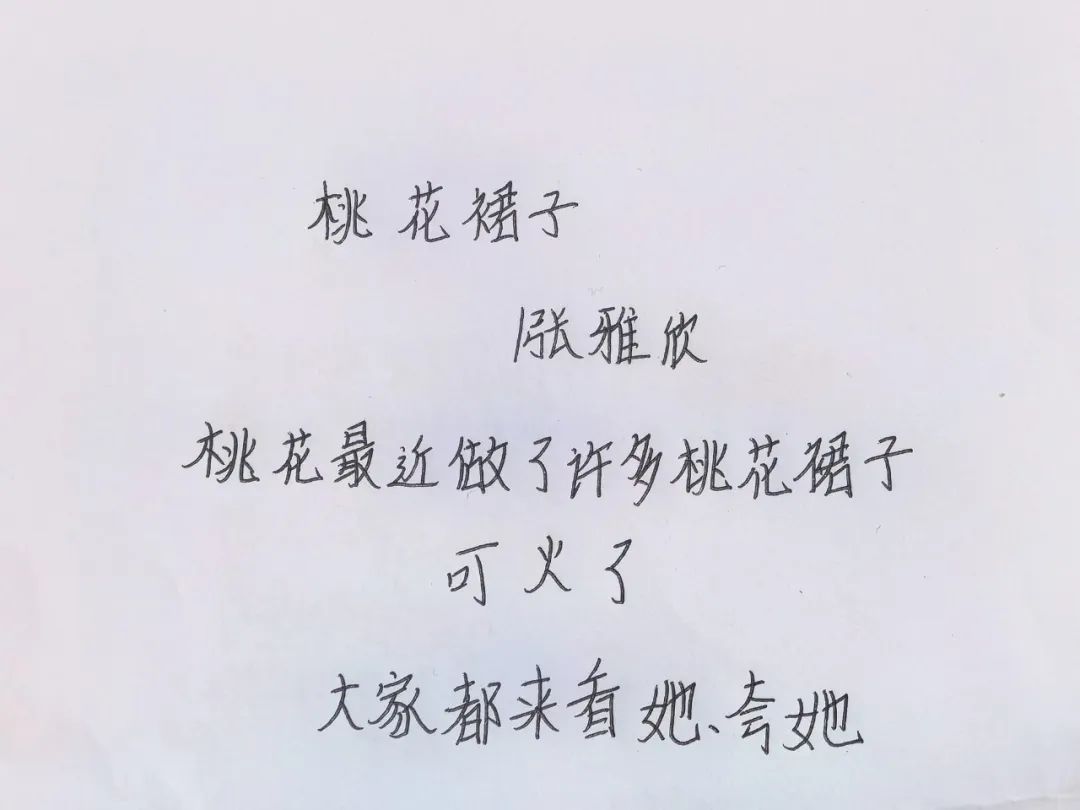 桃花裙子
张雅欣
桃花最近做了许多桃花裙子
可火了
大家都来看她、夸她